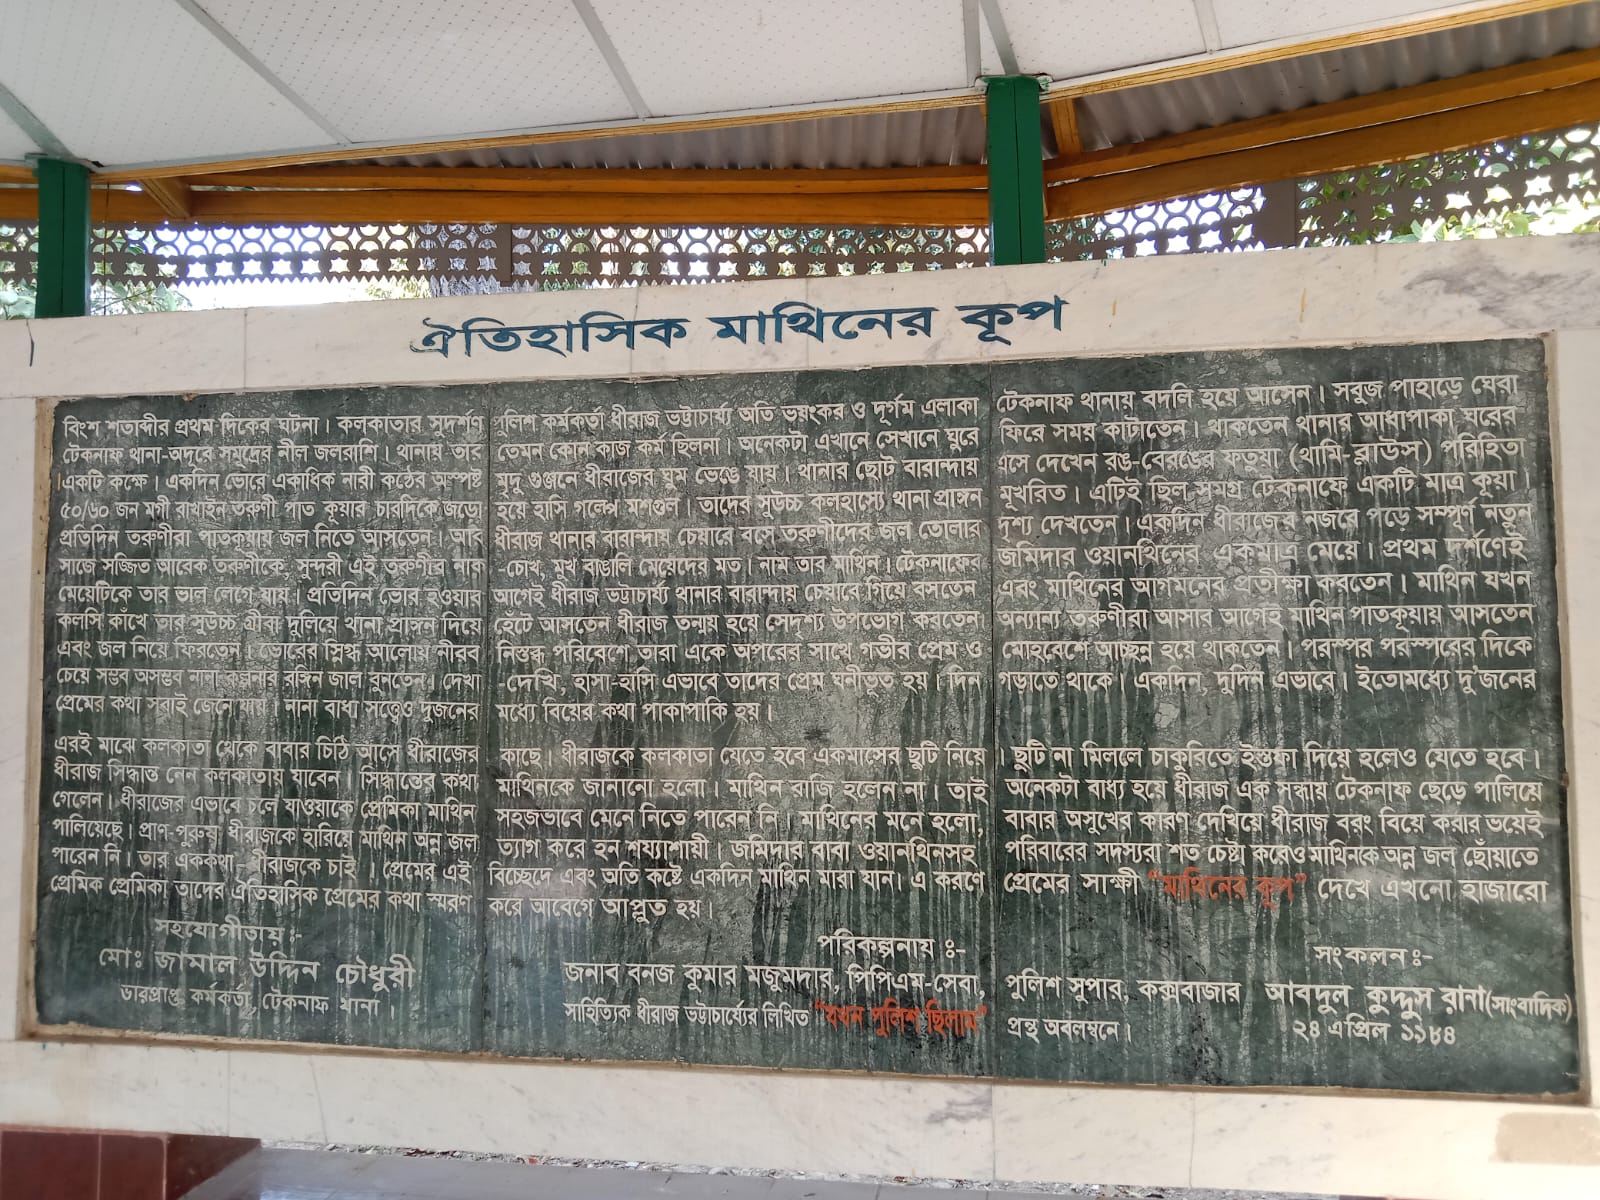 ঐতিহাসিক মাথিনের কূপ
বিংশ শতাব্দীর প্রথম দিকের ঘটনা। কলকাতার সুদর্শণ পুলিশ কর্মকর্তা ধীরাজ ভট্টাচার্য্য অতি ভয়ংকর ও দূর্গম এলাকা টেকনাফ থানায় বদলি হয়ে আসেন। সবুজ পাহাড়ে ঘেরা
টেকনাফ থানা-অদূরে সমূদ্রের নীল জলরাশি। থানায় তার তেমন কোন কাজ কর্ম ছিলনা। অনেকটা এখানে সেখানে ঘুরে ফিরে সময় কাটাতেন। থাকতেন থানার আধাপাকা ঘরের
একটি কক্ষে। একদিন ভোরে একাধিক নারী কন্ঠের অস্পষ্ট মৃদু গুঞ্জনে ধীরাজের ঘুম ভেঙে যায়। থানার ছোট বারান্দায় এসে দেখেন রঙ-বেরঙের ফতুয়া (থামি-ব্লাউস) পরিহিতা
৫০/৬০ জন মগী রাখাইন তরুণী পাত কূয়ার চারদিকে জড়ো হয়ে হাসি গল্পে মশগুল। তাদের সুউচ্চ কলহাস্যে থানা প্রাঙ্গন মূখরিত। এটিই ছিল সমগ্র টেকনাফে একটি মাত্র কূয়া
প্রতিদিন তরুণীরা পাতকূয়ায় জল নিতে আসতেন। আর ধীরাজ থানার বারান্দায় চেয়ারে বসে তরুণীদের জল তোলার দৃশ্য দেখতেন। একদিন ধীরাজের নজরে পড়ে সম্পূর্ণ নতুন
সাজে সজ্জিত আরেক তরুণীকে, সুন্দরী এই তরুণীর নাক -চোখ, মুখ বাঙালি মেয়েদের মত। নাম তার মাথিন। টেকনাফের জমিদার ওয়ানথিনের একমাত্র মেয়ে। প্রথম দর্শণেই
মেয়েটিকে তার ভাল লেগে যায়। প্রতিদিন ভোর হওয়ার আগেই ধীরাজ ভট্টাচার্য্য থানার বারান্দায় চেয়ারে গিয়ে বসতেন এবং মাথিনের আগমনের প্রতীক্ষা করতেন। মাথিন যখন
কলসি কাঁখে তার সুউচ্চ গ্রীবা দুলিয়ে থানা প্রাঙ্গন দিয়ে হেঁটে আসতেন ধীরাজ তন্ময় হয়ে সেদৃশ্য উপভোগ করতেন অন্যান্য তরুণীরা আসার আগেই মাথিন পাতকূয়ায় আসতেন
এবং জল নিয়ে ফিরতেন। ভোরের স্নিগ্ধ আলোয় নীরব নিস্তব্ধ পরিবেশে তারা একে অপরের সাথে গভীর প্রেম ও মোহবেশে আচ্ছন্ন হয়ে থাকতেন। পরস্পর পরস্পরের দিকে
চেয়ে সম্ভব অসম্ভব নানা কল্পনার রঙ্গিন জাল বুনতেন। দেখা -দেখি, হাসা-হাসি এভাবে তাদের প্রেম ঘনীভূত হয়। দিন গড়াতে থাকে। একদিন, দুদিন এভাবে। ইতোমধ্যে দু'জনের
প্রেমের কথা সবাই জেনে যায়। নানা বাধা সত্ত্বেও দুজনের মধ্যে বিয়ের কথা পাকাপাকি হয়।
এরই মাঝে কলকাতা থেকে বাবার চিঠি আসে ধীরাজের কাছে। ধীরাজকে কলকাতা যেতে হবে একমাসের ছুটি নিয়ে। ছুটি না মিললে চাকুরিতে ইস্তফা দিয়ে হলেও যেতে হবে।
ধীরাজ সিদ্ধান্ত নেন কলকাতায় যাবেন। সিদ্ধান্তের কথা মাথিনকে জানানো হলো। মাথিন রাজি হলেন না। তাই অনেকটা বাধ্য হয়ে ধীরাজ এক সন্ধ্যায় টেকনাফ ছেড়ে পালিয়ে
গেলেন। ধীরাজের এভাবে চলে যাওয়াকে প্রেমিকা মাথিন সহজভাবে মেনে নিতে পারেন নি। মাথিনের মনে হলো, বাবার অসুখের কারণ দেখিয়ে ধীরাজ বরং বিয়ে করার ভয়েই
পালিয়েছে। প্রাণ-পুরুষ ধীরাজকে হারিয়ে মাথিন অন্ন জল ত্যাগ করে হন শয্যাশায়ী। জমিদার বাবা ওয়ানথিনসহ পরিবারের সদস্যরা শত চেষ্টা করেও মাথিনকে অন্ন জল ছোঁয়াতে
পারেন নি। তার এককথা -ধীরাজকে চাই। প্রেমের এই বিচ্ছেদে এবং অতি কষ্টে একদিন মাথিন মারা যান। এ কারণে প্রেমের সাক্ষী "মাথিনের কূপ" দেখে এখনো হাজারো
প্রেমিক প্রেমিকা তাদের ঐতিহাসিক প্রেমের কথা স্মরণ করে আবেগে আপ্লুত হয়।
সহযোগীতায়ঃ-
মোঃ জামাল উদ্দিন চৌধুরী
ভারপ্রাপ্ত কর্মকর্তা, টেকনাফ থানা।
পরিকল্পনায়ঃ-
জনাব বনজ কুমার মজুমদার, পিপিএম-সেবা, পুলিশ সুপার, কক্সবাজার
সাহিত্যিক ধীরাজ ভট্টাচার্য্যের লিখিত "যখন পুলিশ ছিলাম" গ্রন্থ অবলম্বনে।
সংকলনঃ-
আবদুল কুদ্দুস রানা(সাংবাদিক)
২৪ এপ্রিল ১৯৮৪